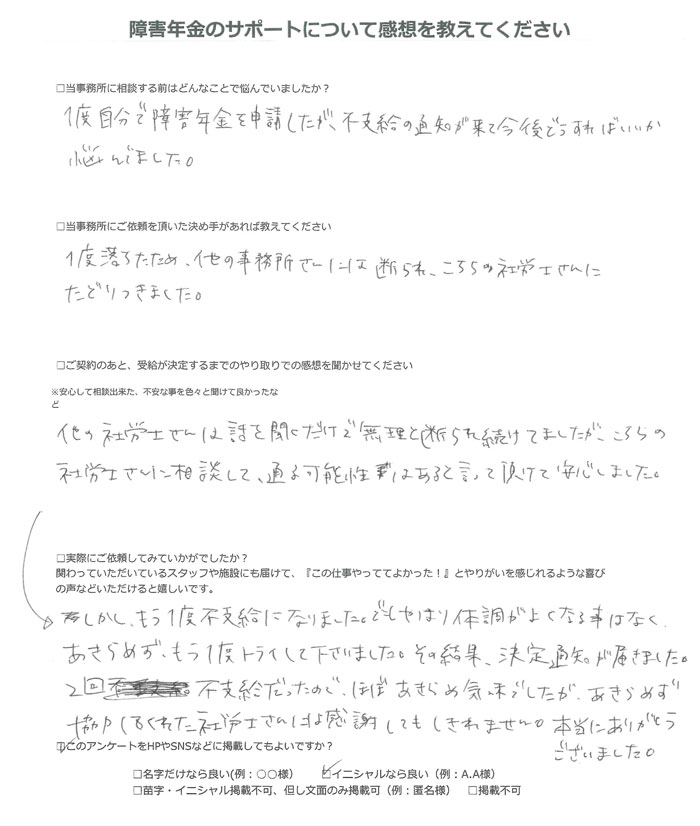 障害年金のサポートについて感想を教えてください
□当事務所に相談する前はどんなことで悩んでいましたか？
1度自分で障害年金を申請したが、不支給の通知が来て今後どうすればいいか
悩んでました。
□当事務所にご依頼を頂いた決め手があれば教えてください
1度落ちたため、他の事務所さんには断られ、こちらの社労士さんに
たどりつきました。
□ご契約のあと、受給が決定するまでのやり取りでの感想を聞かせてください
※安心して相談出来た、不安な事を色々と聞けて良かったな
ど
他の社労士さんは話を聞くだけで無理と断られ続けてましたが、こちらの
社労士さんに相談して、通る可能性はあると言って頂けて安心しました。
□実際にご依頼してみていかがでしたか？
関わっていただいているスタッフや施設にも届けて、『この仕事やっててよかった！』とやりがいを感じれるような喜び
の声などいただけると嬉しいです。
しかし、もう1度不支給になりました。でもやはり体調がよくなる事はなく、
あきらめず、もう1度トライして下さいました。その結果、決定通知が届きました。
2回不支給だったので、ほぼあきらめ気味でしたが、あきらめず
協力してくれた社労士さんには感謝してもしきれません。本当にありがとう
ございました。
□このアンケートをHPやSNSなどに掲載してもよいですか？
□名字だけなら良い(例：○○様） ☑イニシャルなら良い（例：A.A様）
□苗字・イニシャル掲載不可、但し文面のみ掲載可（例：匿名様） □掲載不可